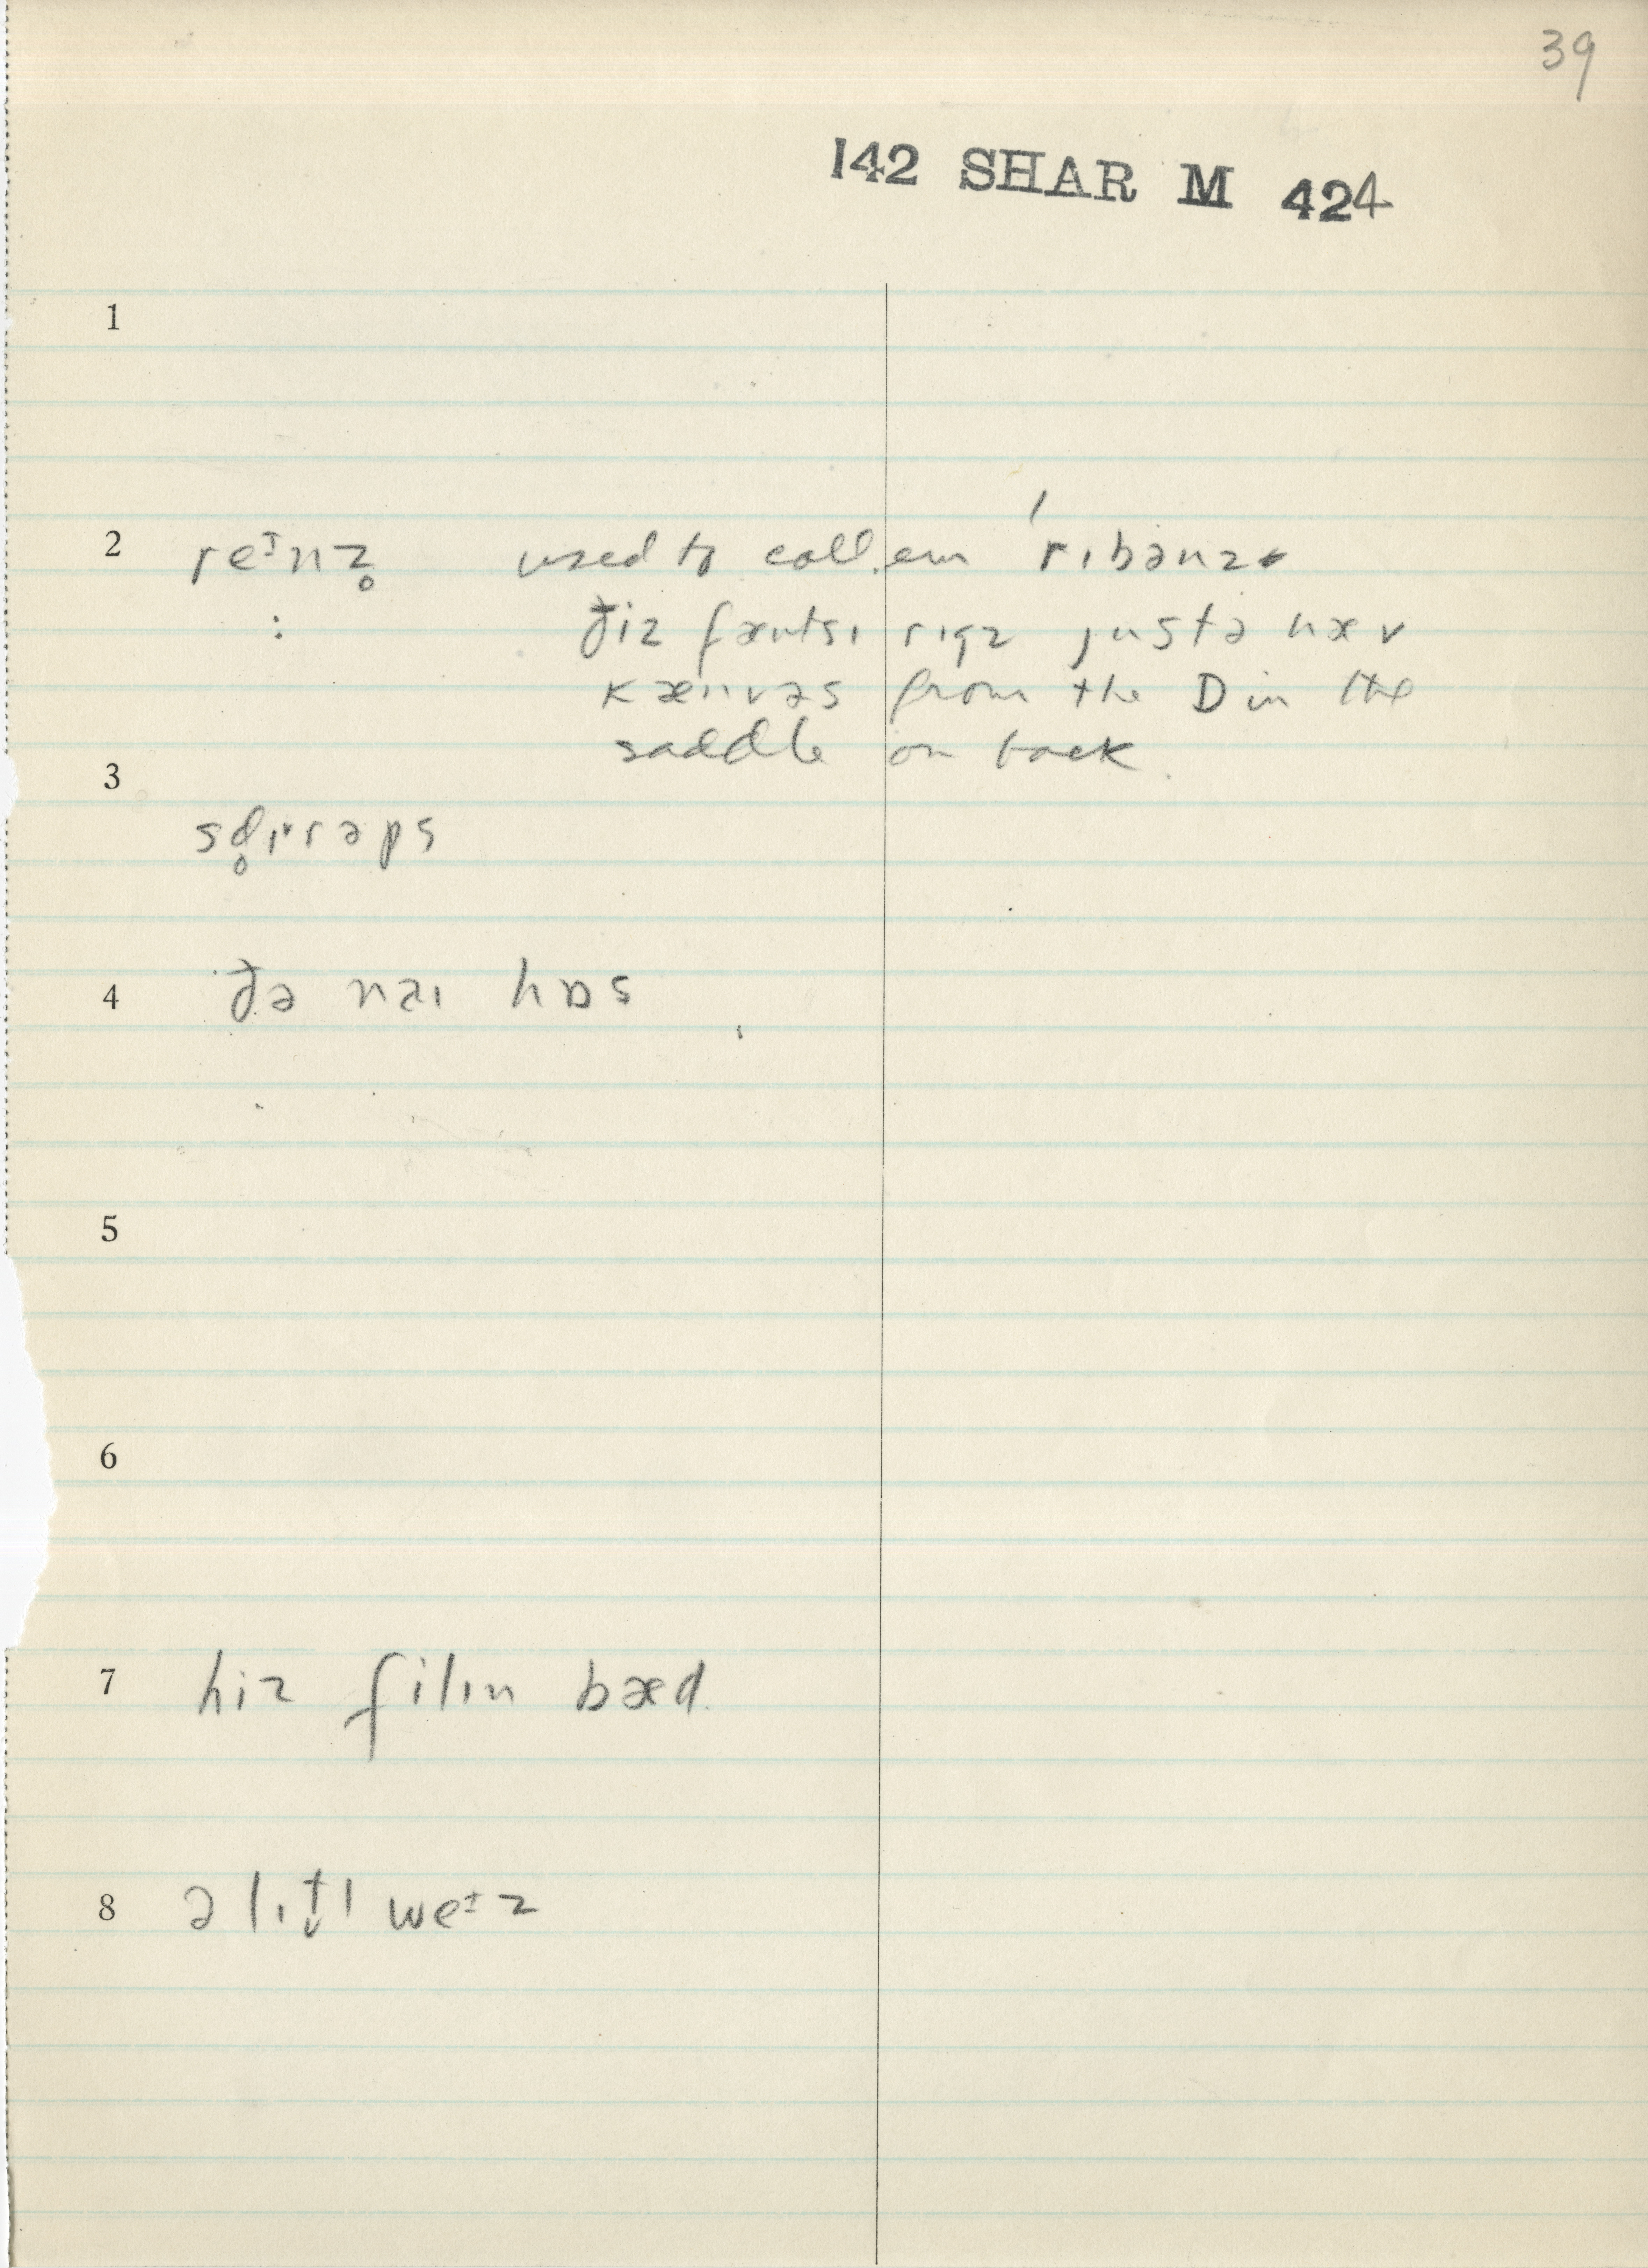 39
142 SHAR M 424
1
2 reᵻnz̥ used to call em ′rıbənz
: ðiz fæntsı rıgz justə hæv
kænvəs from the D in the
saddle on back.
3
sd̥ɪ˅rəps
4 ðə nɑı hɒs
5
6
7 hiz filın bæd
8 ə lıt̬l weᵻz